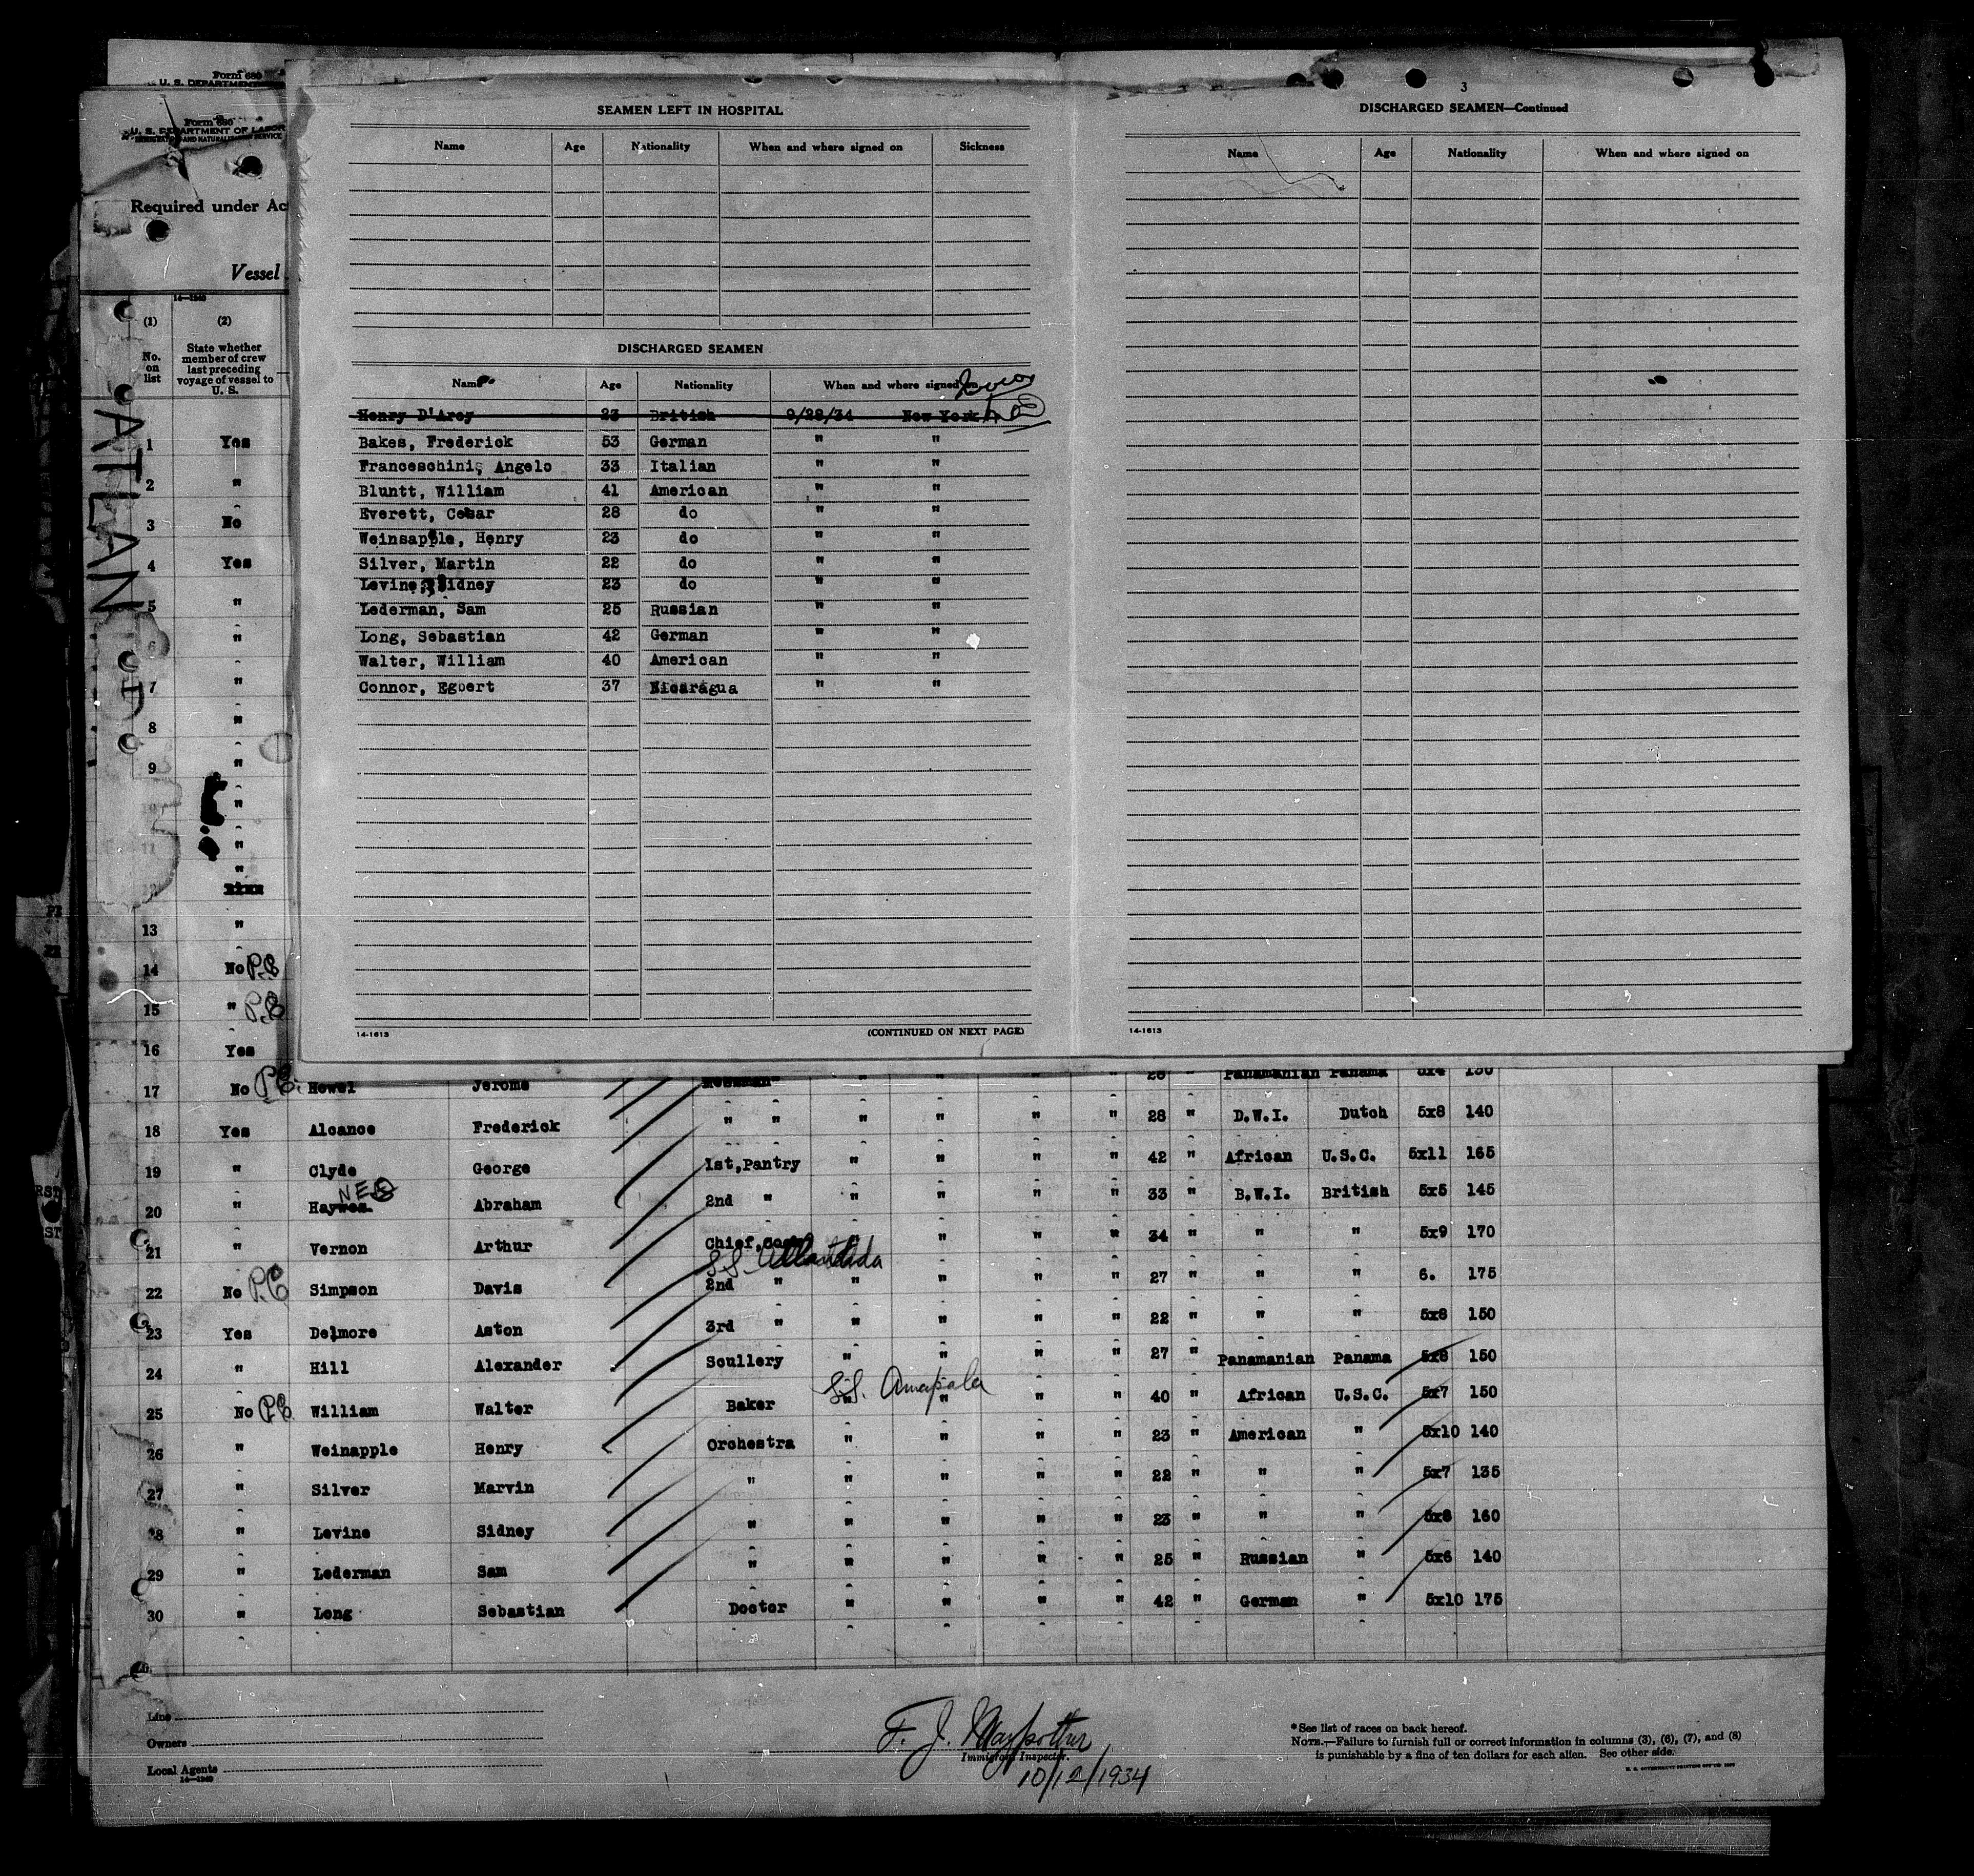 Form 680
U. S. DEPARTMENT
Form 680
U. S. DEPARTMENT OF LABOR
IMMIGRATION AND NATURALIZATION SERVICE
Required under Ac
Vessel
14—1240
(1) (2)
No. on list
State whether member of crew last preceding voyage of vessel to U. S.
ATLAN
SEAMEN LEFT IN HOSPITAL
Name Age Nationality When and where signed on Sickness
DISCHARGED SEAMEN
Name Age Nationality When and where signed on
Henry D'Arcy 23 British 9/28/34 New York
Bakes, Frederick 53 German " "
Franceschini, Angelo 33 Italian " "
Bluntt, William 41 American " "
Everett, Cesar 28 do " "
Weinsapple, Henry 23 do " "
Silver, Martin 22 do " "
Levine, Sidney 23 do " "
Lederman, Sam 25 Russian " "
Long, Sebastian 42 German " "
Walter, William 40 American " "
Connor, Egbert 37 Nicaragua " "
14-1613 (CONTINUED ON NEXT PAGE)
3
DISCHARGED SEAMEN—Continued
Name Age Nationality When and where signed on
14-1613
1 Yes
2 "
3 No
4 Yes
5 "
6 "
7 "
8 "
9 "
10 "
11 "
12
13 "
14 No P.E
15 " P.E
16 Yes
17 No P.E. Howel Jerome Messman " " " " 28 " Panamanian Panama 5x4 130
18 Yes Alcance Frederick " " " " " " 28 " D.W.I. Dutch 5x8 140
19 " Clyde George 1st,Pantry " " " " 42 " African U.S.C. 5x11 165
NES
20 " Haywes Abraham 2nd " " " " " 33 " B.W.I. British 5x5 145
21 " Vernon Arthur Chief,Cook " " " " 34 " " " 5x9 170
S.S. Atlantida
22 No P.E Simpson Davis 2nd " " " " " 27 " " " 6. 175
23 Yes Delmore Aston 3rd " " " " " 22 " " " 5x8 150
24 " Hill Alexander Scullery " " " " 27 " Panamanian Panama 5x8 150
S.S. Amapala
25 No P.E. William Walter Baker " " " " 40 " African U.S.C. 5x7 150
26 " Weinapple Henry Orchestra " " " " 23 " American " 5x10 140
27 " Silver Marvin " " " " " 22 " " " 5x7 135
28 " Levine Sidney " " " " " 23 " " " 5x8 160
29 " Lederman Sam " " " " " 25 " Russian " 5x6 140
30 " Long Sebastian Doctor " " " " 42 " German " 5x10 175
Line
Owners
Local Agents
14—1240
F. J. Maypother
Immigrant Inspector.
10/12/1934
*See list of races on back hereof.
NOTE.—Failure to furnish full or correct information in columns (3), (6), (7), and (8)
is punishable by a fine of ten dollars for each alien. See other side.
U. S. GOVERNMENT PRINTING OFFICE